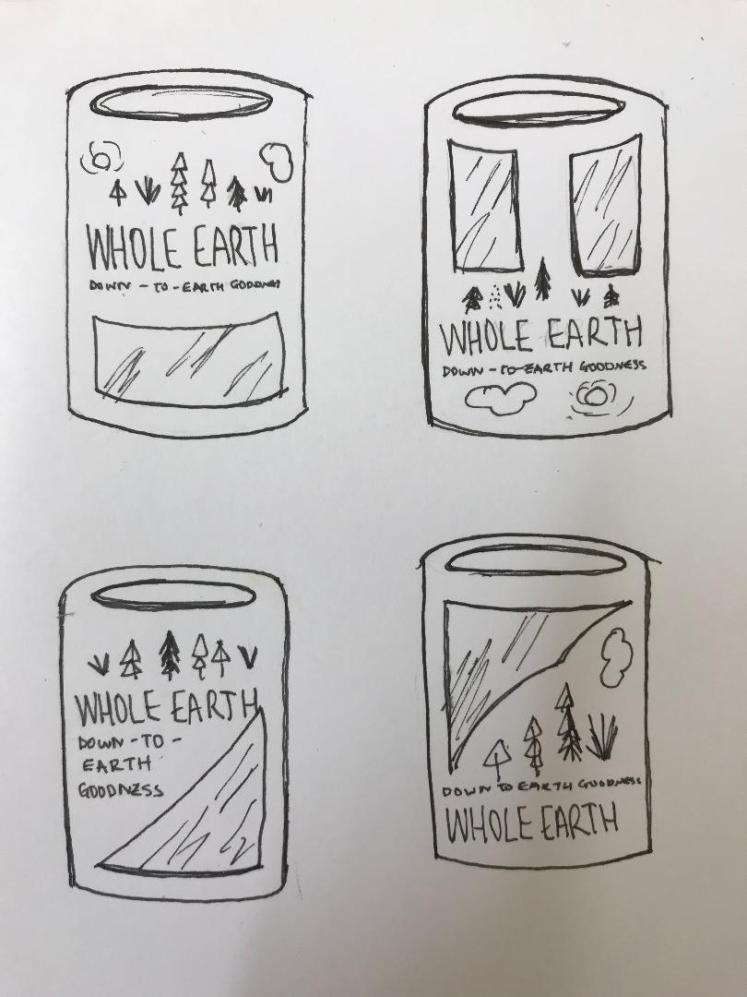 WHOLE EARTH
DOWN - TO - EARTH GOODNESS
WHOLE EARTH
DOWN - TO - EARTH GOODNESS
WHOLE EARTH
DOWN - TO -
EARTH
GOODNESS
DOWN TO EARTH GOODNESS
WHOLE EARTH